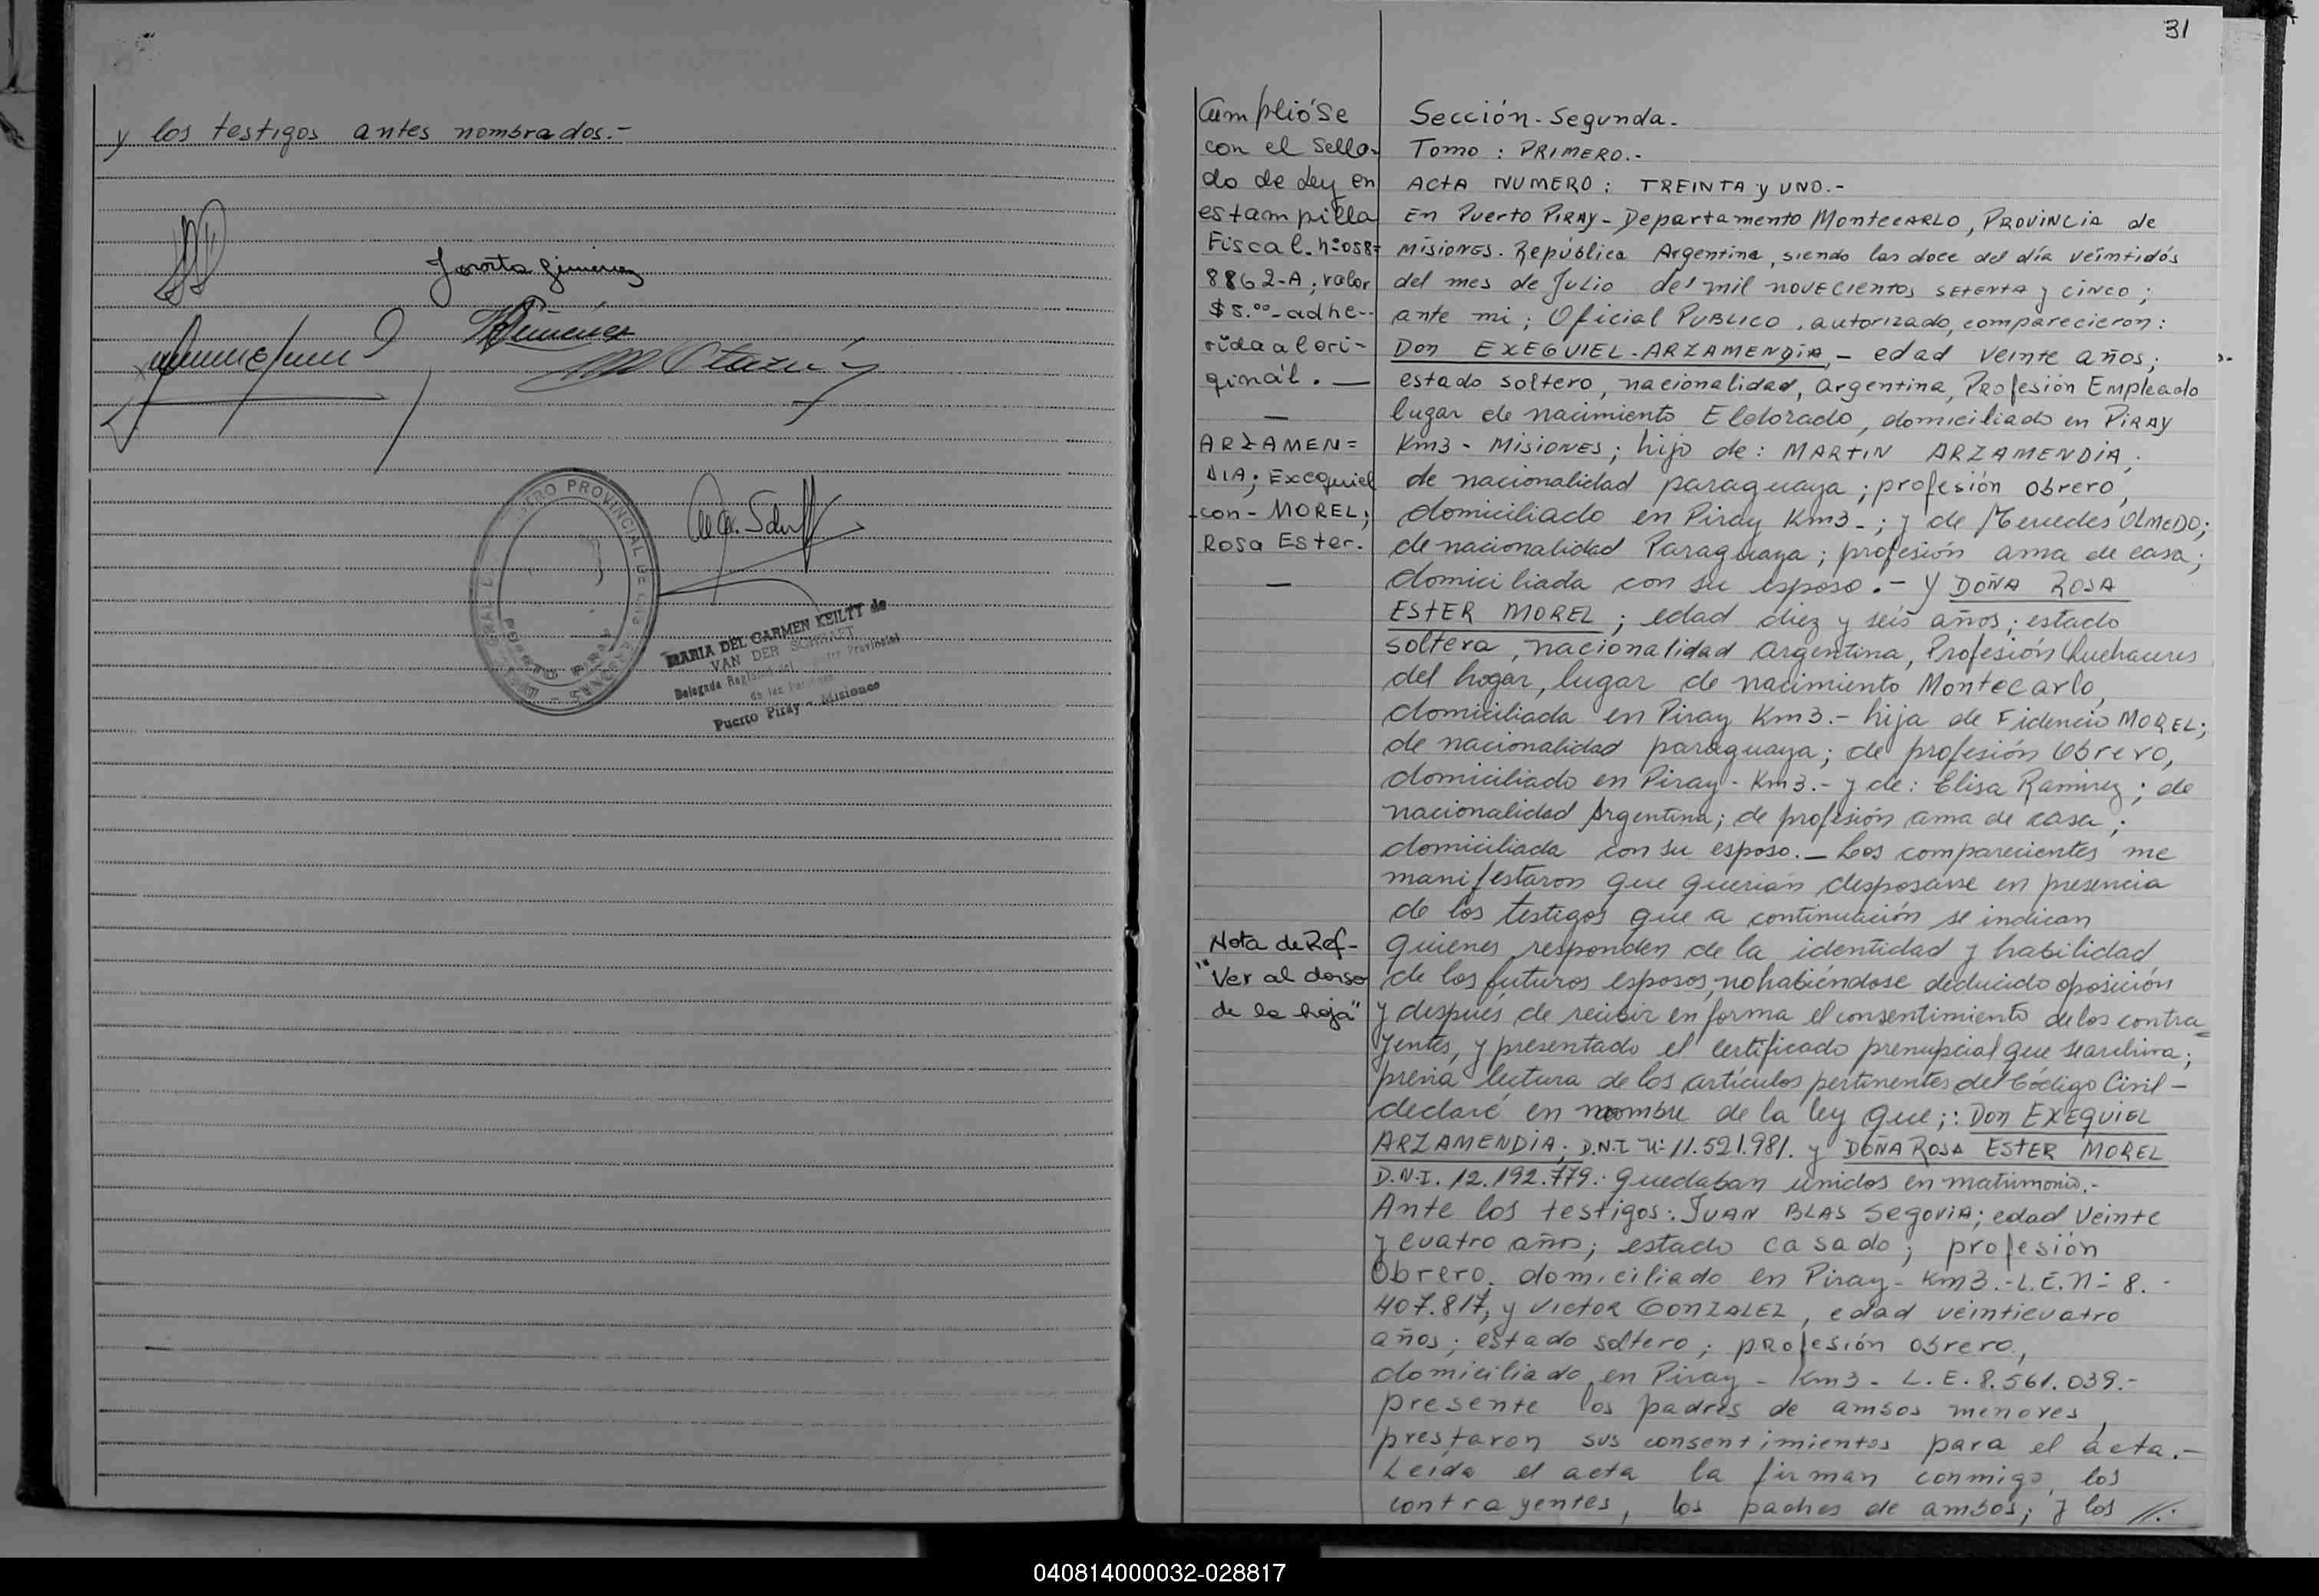 y los testigos antes nombrados.-
MARIA DEL CARMEN KEILTY de
VAN DER SCHRAFT
Delegada Regional del Provincial
de las Personas
Puerto Piray - Misiones
PUERTO PIRAY
31
Cumplióse
con el Sella-
do de Ley en
estampilla
Fiscal. nº 058=
8862-A; valor
$5.00- adhe-
rida al ori-
ginál. —
—
ARZAMEN=
DIA; Exequiel
-con- MOREL;
Rosa Ester.
—
Nota de Ref-
"Ver al dorso
de la hoja"
Sección- Segunda.
Tomo : PRIMERO.-
ACTA NUMERO : TREINTA y UNO.-
En Puerto PIRAY - Departamento MonteCARLO, PROVINCIA de
MISIONES. República Argentina, siendo las doce del día veintidós
del mes de Julio de mil novecientos SETENTA y CINCO;
ante mi; Oficial PUBLICO, autorizado, comparecieron:
Don EXEQUIEL-ARZAMENDIA, - edad veinte años;
estado soltero, nacionalidad, argentina, Profesión Empleado
lugar de nacimiento Eldorado, domiciliado en PIRAY
Km3 - MISIONES; hijo de : MARTIN ARZAMENDIA;
de nacionalidad paraguaya; profesión obrero,
domiciliado en Piray Km3-; y de Mercedes OLMEDO;
de nacionalidad Paraguaya; profesión ama de casa;
domiciliada con su esposo.- Y DOÑA ROSA
ESTER MOREL; edad diez y seis años; estado
soltera, nacionalidad argentina, Profesión Quehaceres
del hogar, lugar de nacimiento Montecarlo,
domiciliada en Piray Km3.- hija de Fidencio MOREL;
de nacionalidad paraguaya; de profesión Obrero,
domiciliado en Piray - Km3.- y de: Elisa Ramirez; de
nacionalidad Argentina; de profesión ama de casa;
domiciliada con su esposo.- Los comparecientes me
manifestaron que querian desposarse en presencia
de los testigos que a continuación se indican
quienes responden de la identidad y habilidad
de los futuros esposos, no habiéndose deducido oposición
y despúes de recibir en forma el consentimiento de los contra=
yentes, y presentado el certificado prenupcial que se archiva;
previa lectura de los artículos pertinentes del Código Civil -
declaré en nombre de la ley que;: Don EXEQUIEL
ARZAMENDIA; D.N.I Nº 11.521.981. y DOÑA ROSA ESTER MOREL
D.N.I. 12.192.779.- quedaban unidos en matrimonio.-
Ante los testigos: JUAN BLAS SEGOVIA; edad Veinte
y cuatro años; estado casado; profesión
Obrero, domiciliado en Piray - Km3.- L.E. Nº 8.-
407.817, y VICTOR GONZALEZ, edad veinticuatro
años; estado soltero; profesión obrero,
domiciliado en Piray - Km3 - L.E. 8.561.039.-
presente los padres de ambos menores,
prestaron sus consentimientos para el acta.-
Leida el acta la firman conmigo, los
contrayentes, los padres de ambos; y los //.
040814000032-028817